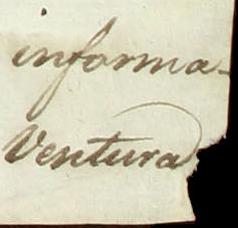 informa-
Ventura